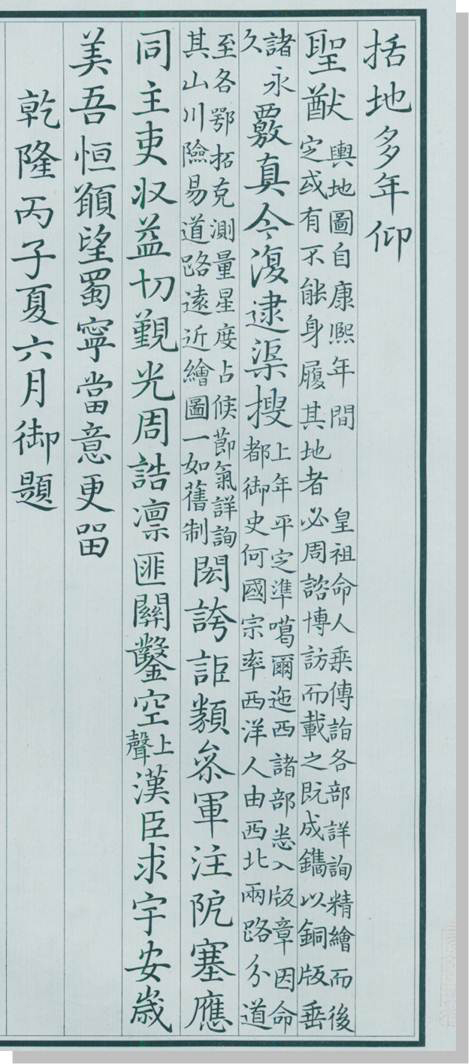 括地多年仰
聖猷輿地圖自康熙年間 皇祖命人乘傳詣各部詳詢精繪而後
定或有不能身履其地者必周諮博訪而載之既成鐫以銅版垂
諸永
久
覈真今復逮渠搜上年平定準噶爾迤西諸部悉入版章因命
都御史何國宗率西洋人由西北兩路分道
至各鄂拓克測量星度占候節氣詳詢
其山川險易道路遠近繪圖一如舊制
閎誇詎類叅軍注阨塞應
同主吏収益切覲光周誥凛匪關鑿空上聲漢臣求宇安歲
美吾恒願望蜀寧當意更留
乾隆丙子夏六月御題